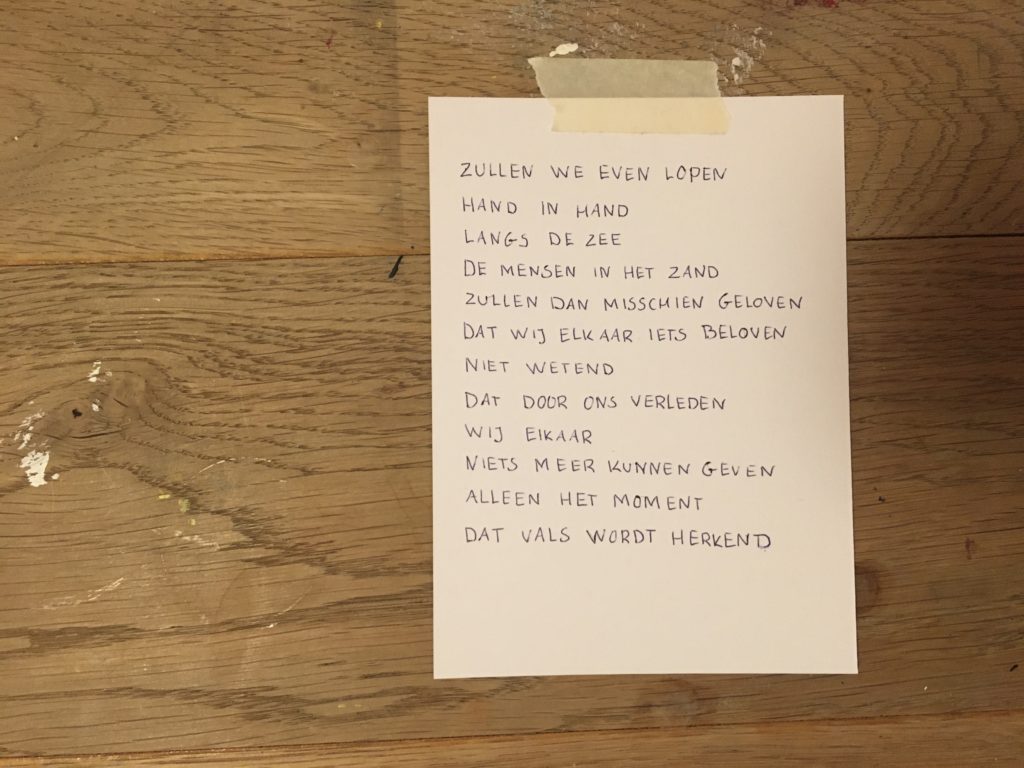 ZULLEN WE EVEN LOPEN
HAND IN HAND
LANGS DE ZEE
DE MENSEN IN HET ZAND
ZULLEN DAN MISSCHIEN GELOVEN
DAT WIJ ELKAAR IETS BELOVEN
NIET WETEND
DAT DOOR ONS VERLEDEN
WIJ ELKAAR
NIETS MEER KUNNEN GEVEN
ALLEEN HET MOMENT
DAT VALS WORDT HERKEND